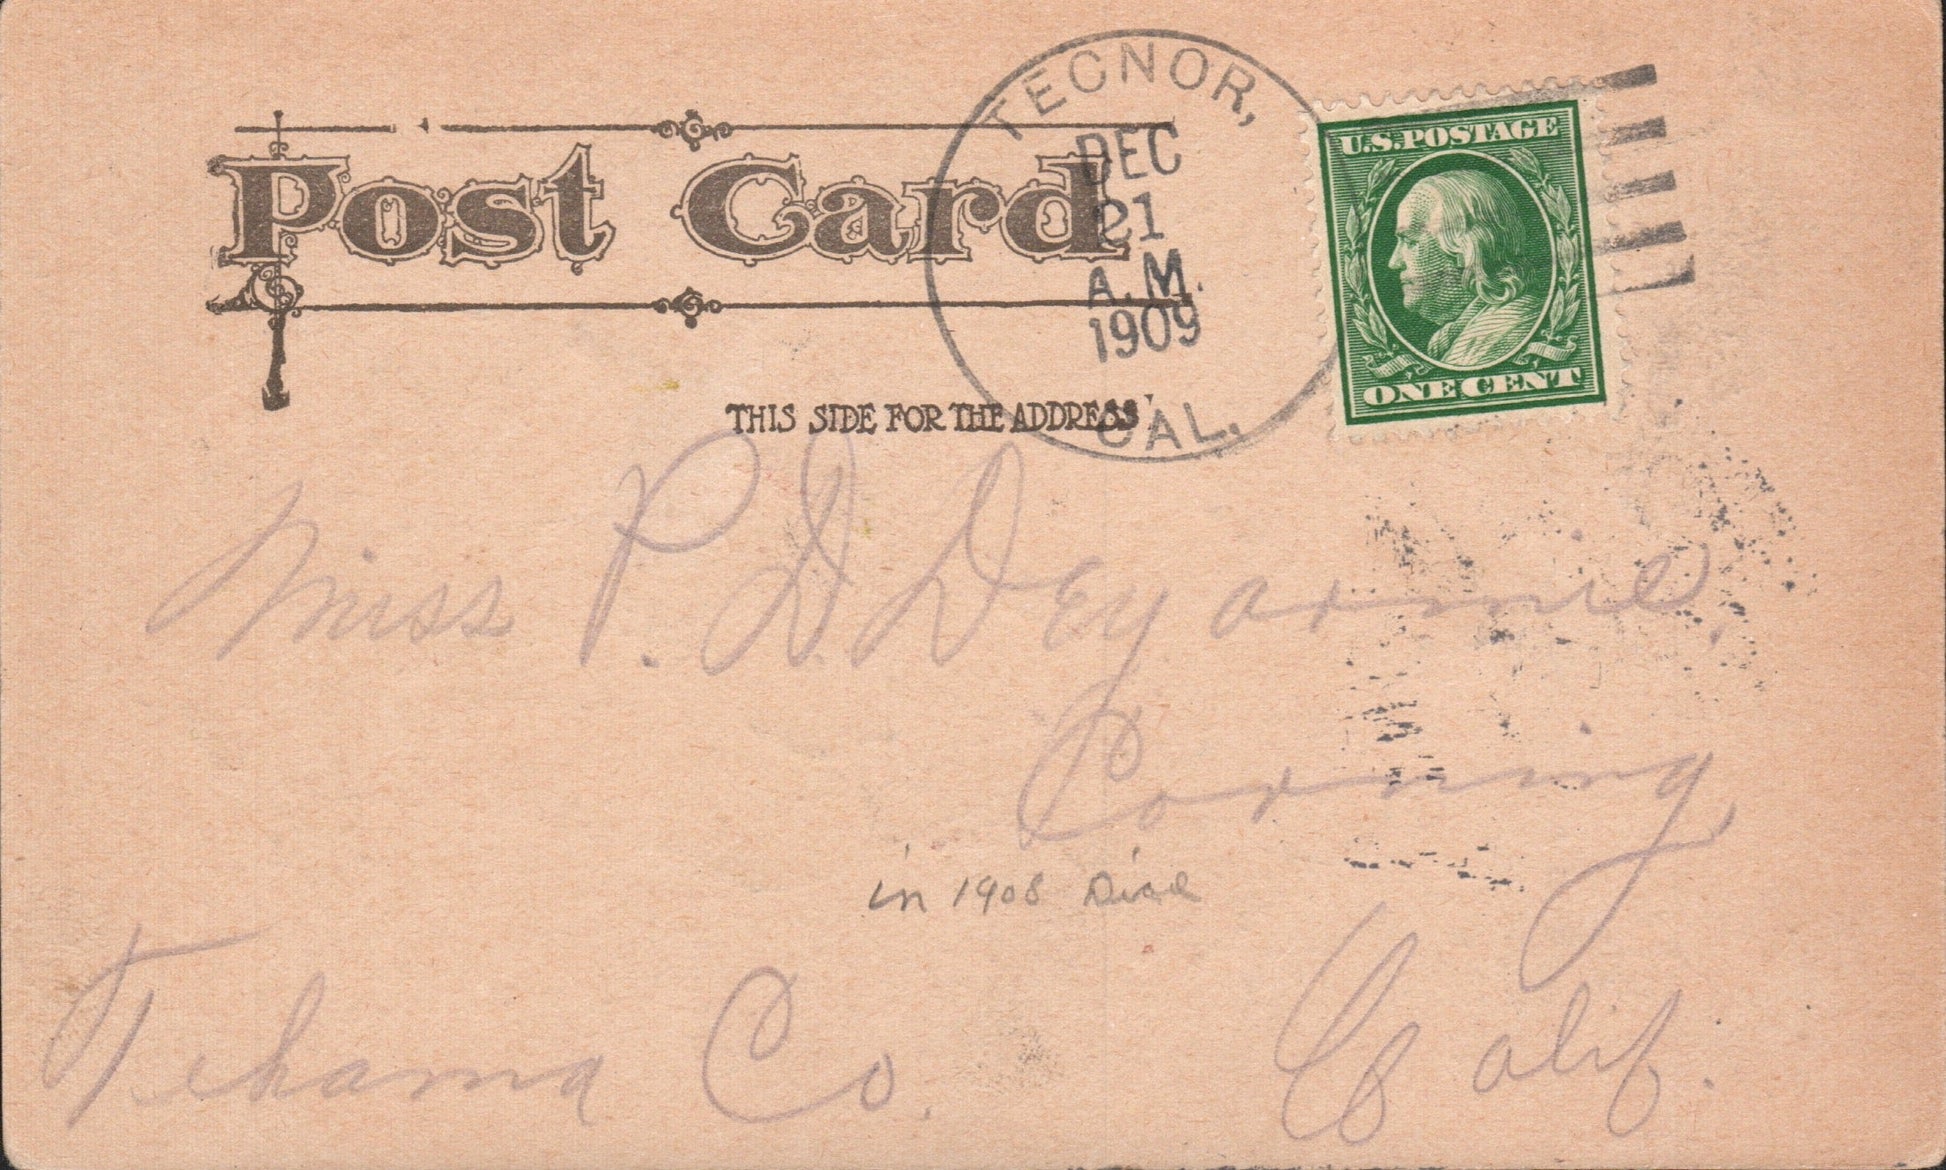 Post Card
TECNOR,
DEC
21
A.M.
1909
CAL.
U.S. POSTAGE
ONE CENT
THIS SIDE FOR THE ADDRESS
Miss P. D. Deyarmie,
Corning,
in 1908 Died
Tehama Co. Calif.